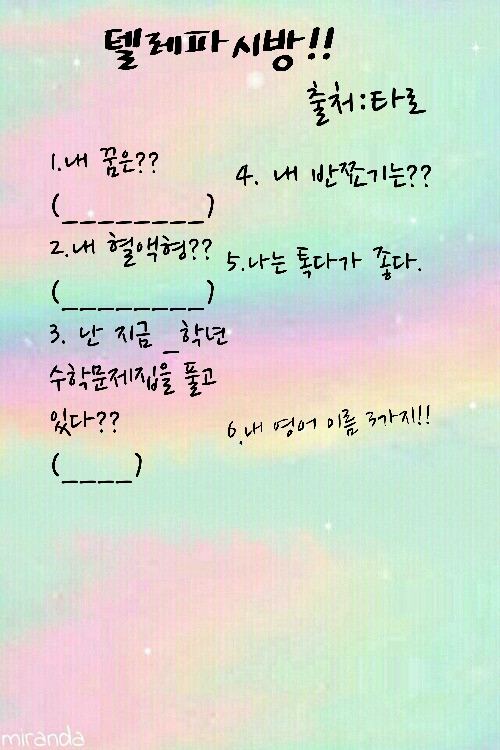 텔레파시방!!
출처:타로
1.내 꿈은??
(________)
2.내 혈액형??
(________)
3. 난 지금 _학년
수학문제집을 풀고
있다??
(____)
4. 내 반쪼기는??
5.나는 톡다가 좋다.
6.내 영어 이름 3가지!!
miranda